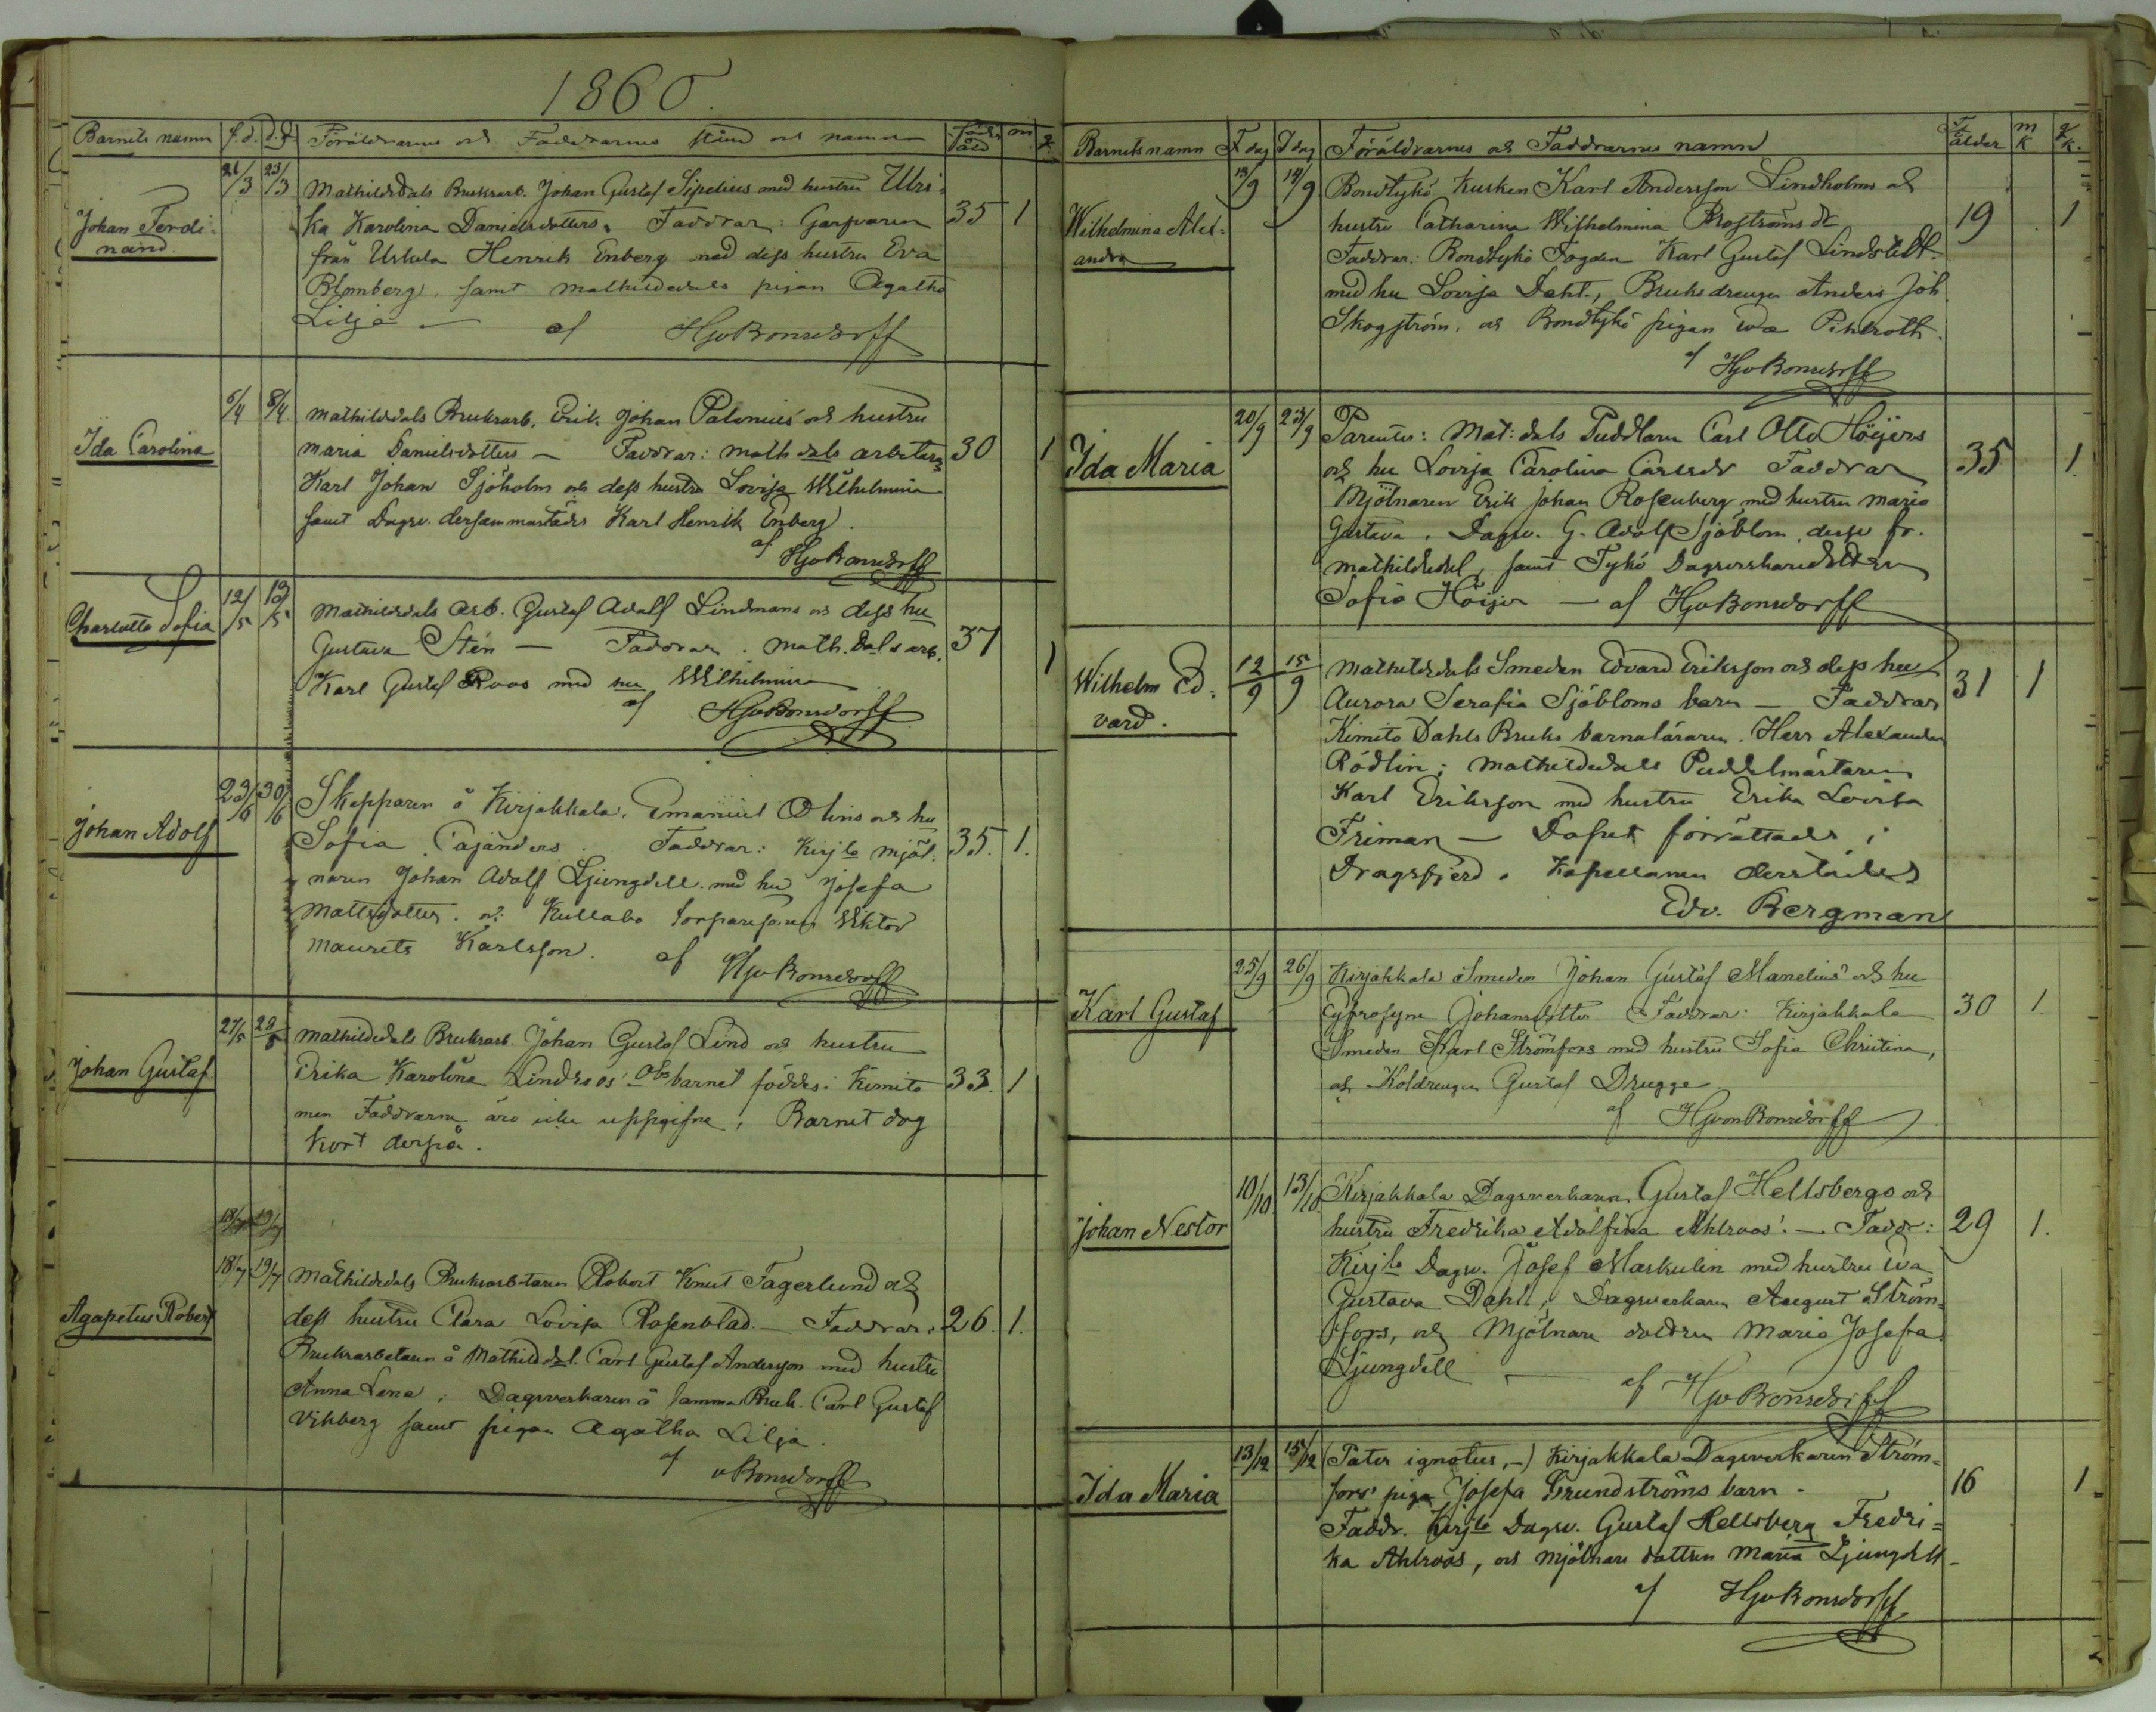 1860.
Barnets namn f.d. d.d. Föräldrarnes och Faddrarnes stånd och namn m q
Johan Ferdi-
nand.
21/3 23/3 Mathildedals Bruksarb. Johan Gustaf Sipelius med hustru Ulri-
ka Karolina Danielsdotters. Faddrar: Garfvaren 35 1
från Uskela Henrik Enberg med dess hustru Eva
Blomberg, samt Mathildedals pigan Agatha
Lilja — af HjvBonsdorff
Ida Carolina
6/4 8/4 Mathildedals Bruksarb. Erik Johan Palonius' och hustru
Maria Danielsdotters — Faddrar: Mathdals arbetaren 30 1
Karl Johan Sjöholm och dess hustru Lovisa Wilhelmina
samt Dagsv. dersammastädes Karl Henrik Enberg.
af HjvBonsdorff
Charlotta Sofia
12/5 13/5 Mathildedals arb. Gustaf Adolf Lindmans och dess hu
Gustava Stén — Faddrar. Math.dals arb. 37 1
Karl Gustaf Roos med hu Wilhelmina
af HjvBonsdorff
Johan Adolf
29/6 30/6 Skepparen å Kirjakkala, Emanuel Olins och hu
Sofia Cajanders. Faddrar: Kirjla mjöl- 35. 1.
naren Johan Adolf Ljungdell med hu Josefa
Mattsdotter. och Kullabo torparesonen Viktor
Maurits Karlsson. af HjvBonsdorff
Johan Gustaf
27/5 28/5 Mathildedals Bruksarb. Johan Gustaf Lind och hustru
Erika Karolina Lindroos' Obs barnet föddes i Kimito 33. 1
men Faddrarne äro icke uppgifne, Barnet dog
kort derpå.
18/7 19/7
Agapetus Robert
18/7 19/7 Mathildedals Bruksarbetaren Robert Knut Fagerlund och
dess hustru Clara Lovisa Rosenblad — Faddrar: 26. 1.
Bruksarbetaren å Mathildedal. Carl Gustaf Andersson med hustru
Anna Lena; Dagsverkaren å samma Bruk. Carl Gustaf
Vikberg samt pigan Agatha Lilja.
af vBonsdorff
Barnets namn F dag D dag Föräldrarnes och Faddrarnes namn ålder m k q k.
Wilhelmina Alex-
andra
13/9 14/9 Bondtykö Kusken Karl Andersson Lindholms och
hustru Catharina Wilhelmina Broströms dr 19 1
Faddrar: Bondtykö Fogden Karl Gustaf Lindstedt
med hu Lovisa Dahl, Bruksdrengen Anders Joh
Skogström, och Bondtykö pigan Eva Pihlroth.
af HjvBonsdorff
Ida Maria
20/9 23/9 Parentes: Mat:dals Puddlaren Carl Otto Höijers
och hu Lovisa Carolina Carlsdr Faddrar 35 1.
Mjölnaren Erik Johan Rosenberg med hustru Maria
Gustava. Dagsv. G. Adolf Sjöblom, desse fr.
Mathildedal, samt Tykö Dagsverkaredottern
Sofia Höijer — af HjvBonsdorff
Wilhelm Ed-
vard.
12/9 15/9 Mathildedals Smeden Edvard Eriksson och dess hu
Aurora Serafia Sjöbloms barn — Faddrar 31 1
Kimito Dahls Bruks barnaläraren. Herr Alexander
Rödlin; Mathildedals Puddelmästaren
Karl Eriksson med hustru Erika Lovisa
Friman — Dopet förrättades i
Dragsfjerd. Kapellanen derstädes
Edv. Bergman
Karl Gustaf
25/9 26/9 Kirjakkala Smeden Johan Gustaf Mamelius' och hu
Johansdotter Faddrar: Kirjakkala 30 1.
Smeden Karl Strömfors med hustru Sofia Christina,
och Koldrengen Gustaf Drugge.
af HjvonBonsdorff
Johan Nestor
10/10 13/10 Kirjakkala Dagsverkaren Gustaf Hellsbergs och
hustru Fredrika Adolfina Ahlroos'. — Faddr: 29 1.
Kirjla Dagsv. Josef Maskulin med hustru Eva
Gustava Dahl; Dagsverkaren August Ström-
fors, och Mjölnare dottren Maria Josefa
Ljungdell — af HjvBonsdorff
Ida Maria
13/12 15/12 (Pater ignotus,-) Kirjakkala Dagsverkaren Ström-
fors' piga Josefa Grundströms barn - 16 1
Faddr. Kirjla Dagsv. Gustaf Hellsberg Fredri-
ka Ahlroos, och mjölnare dottren Maria Ljungdell -
af HjvBonsdorff